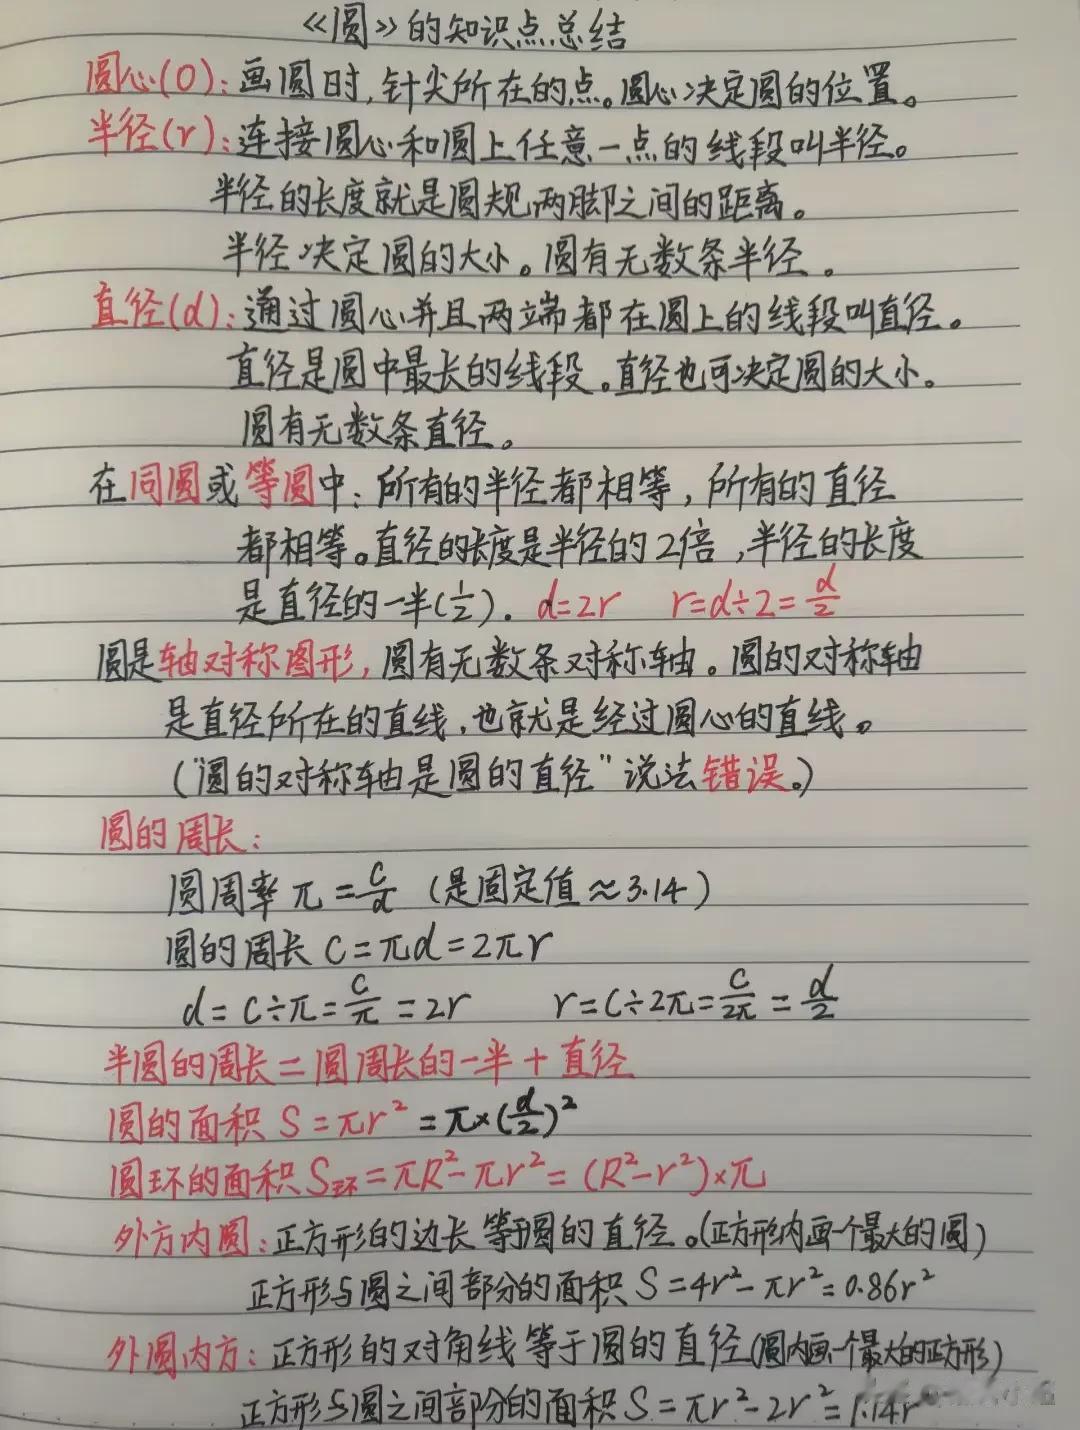 《圆》的知识点总结
圆心(O):画圆时,针尖所在的点。圆心决定圆的位置。
半径(r):连接圆心和圆上任意一点的线段叫半径。
半径的长度就是圆规两脚之间的距离。
半径决定圆的大小。圆有无数条半径。
直径(d):通过圆心并且两端都在圆上的线段叫直径。
直径是圆中最长的线段。直径也可决定圆的大小。
圆有无数条直径。
在同圆或等圆中:所有的半径都相等,所有的直径
都相等。直径的长度是半径的2倍,半径的长度
是直径的一半(1/2)。d=2r r=d÷2=d/2
圆是轴对称图形,圆有无数条对称轴。圆的对称轴
是直径所在的直线,也就是经过圆心的直线。
(“圆的对称轴是圆的直径”说法错误。)
圆的周长:
圆周率π=C/d (是固定值≈3.14)
圆的周长C=πd=2πr
d=C÷π=C/π=2r r=C÷2π=C/2π=d/2
半圆的周长=圆周长的一半+直径
圆的面积S=πr²=π×(d/2)²
圆环的面积S环=πR²-πr²=(R²-r²)×π
外方内圆:正方形的边长等于圆的直径。(正方形内画一个最大的圆)
正方形与圆之间部分的面积S=4r²-πr²=0.86r²
外圆内方:正方形的对角线等于圆的直径(圆内画一个最大的正方形)
正方形与圆之间部分的面积S=πr²-2r²=1.14r²